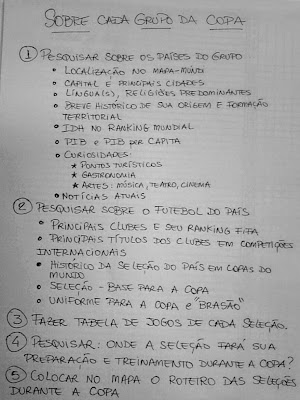 SOBRE CADA GRUPO DA COPA
1 PESQUISAR SOBRE OS PAÍSES DO GRUPO
• LOCALIZAÇÃO NO MAPA-MÚNDI
• CAPITAL E PRINCIPAIS CIDADES
• LÍNGUA(S), RELIGIÕES PREDOMINANTES
• BREVE HISTÓRICO DE SUA ORIGEM E FORMAÇÃO
TERRITORIAL
• IDH NO RANKING MUNDIAL
• PIB E PIB PER CAPITA
• CURIOSIDADES:
* PONTOS TURÍSTICOS
* GASTRONOMIA
* ARTES: MÚSICA, TEATRO, CINEMA
• NOTÍCIAS ATUAIS
2 PESQUISAR SOBRE O FUTEBOL DO PAÍS
• PRINCIPAIS CLUBES E SEU RANKING FIFA
• PRINCIPAIS TÍTULOS DOS CLUBES EM COMPETIÇÕES
INTERNACIONAIS
• HISTÓRICO DA SELEÇÃO DO PAÍS EM COPAS DO
MUNDO
• SELEÇÃO - BASE PARA A COPA
• UNIFORME PARA A COPA E "BRASÃO"
3 FAZER TABELA DE JOGOS DE CADA SELEÇÃO.
4 PESQUISAR: ONDE A SELEÇÃO FARÁ SUA
PREPARAÇÃO E TREINAMENTO DURANTE A COPA?
5 COLOCAR NO MAPA O ROTEIRO DAS SELEÇÕES
DURANTE A COPA